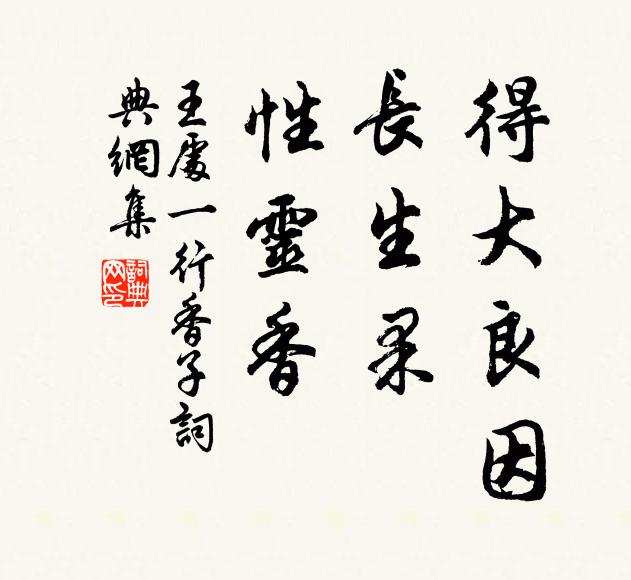 得大良因
長生果
性靈香
王處一行香子詞
典網集
詞典網印